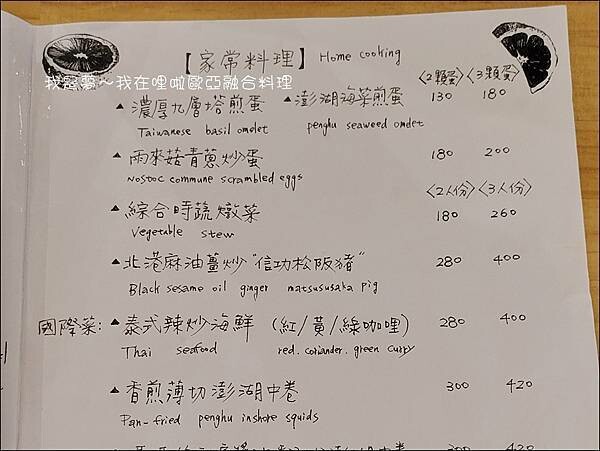 【家常料理】 Home cooking
我醫夢～我在哩啦歐亞融合料理
〈2顆蛋〉〈3顆蛋〉
▲濃厚九層塔煎蛋 ▲澎湖海菜煎蛋 130 180
Taiwanese basil omelet penghu seaweed omelet
▲雨來菇青蔥炒蛋 180 200
Nostoc commune scrambled eggs
〈2人份〉〈3人份〉
▲綜合時蔬燉菜 180 260
Vegetable stew
▲北港麻油薑炒"信功松阪豬" 280 400
Black sesame oil ginger matsususaka pig
國際菜:▲泰式辣炒海鮮 (紅/黃/綠咖哩) 280 400
Thai seafood red. coriander. green curry
▲香煎薄切澎湖中卷 300 420
Pan-fried penghu inshore squids
300 420